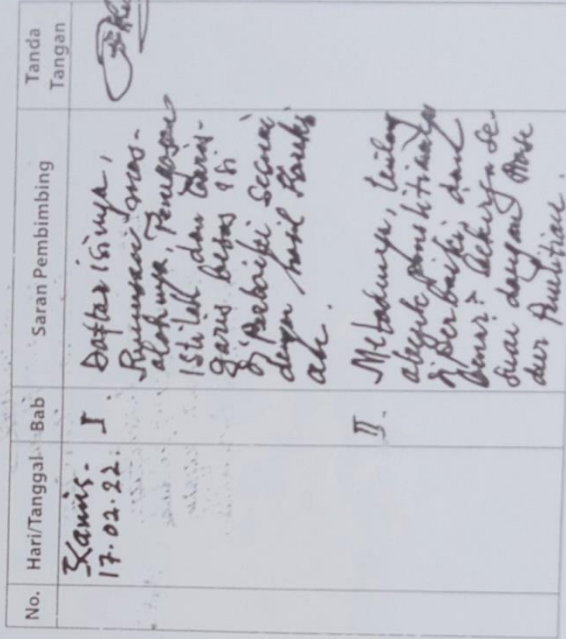 No. Hari/Tanggal Bab Saran Pembimbing Tanda Tangan
Kamis. I. Daftar isinya,
17.02.22. Rumusan mas-
alahnya, Penegasan
Istilah dan Garis-
garis besar isi
diperbaiki sesuai
dengan hasil
II. Metodenya,
obyek penelitiannya
diperbaiki dan
se-
suai dengan
dur Penelitian.